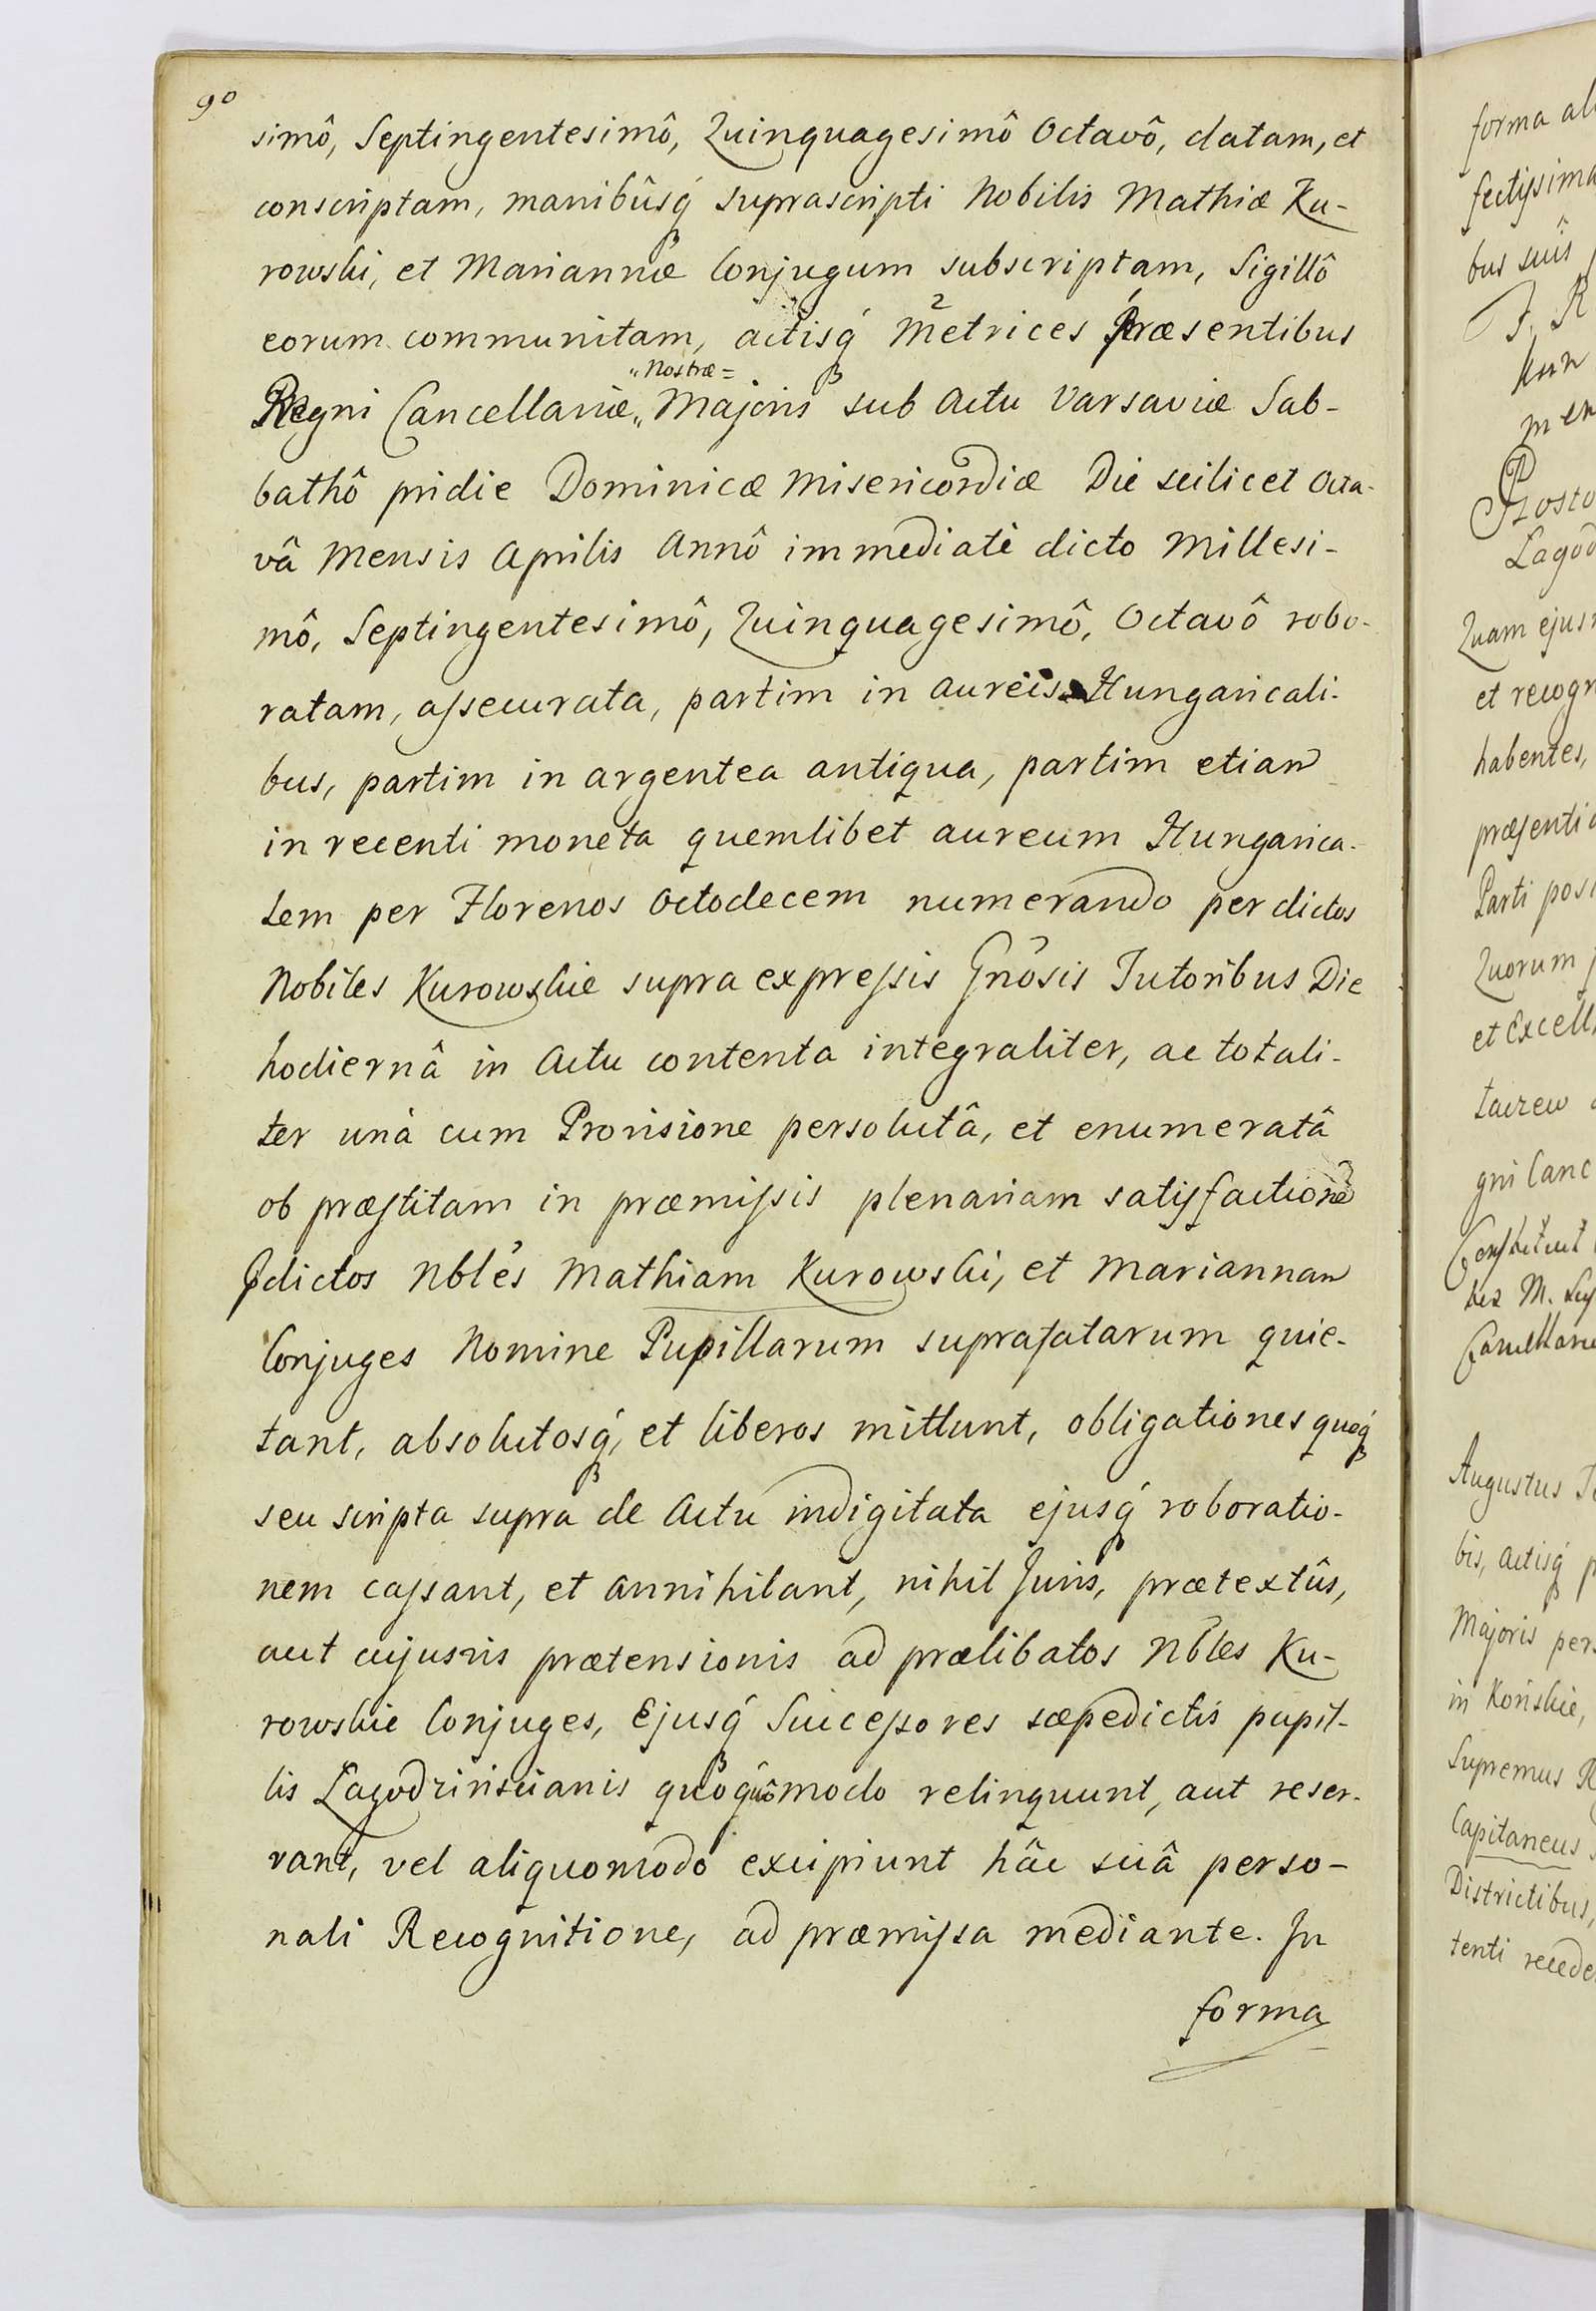 90
simô, Septingentesimô, Quinquagesimô Octavô, datam, et
conscriptam, manibûsq́ suprascripti Nobilis Mathiæ Ku-
rowski, et Mariannæ Conjugum subscriptam, Sigillô
eorum communitam, actisq́ Metrices Præsentibus
"Nostræ=
Regni Cancellariæ„ Majoris sub Actu Varsaviæ Sab-
bathô pridie Dominicæ Misericordiæ Die scilicet Octa-
vâ Mensis Aprilis Annô immediatè dicto Millesi-
mô, Septingentesimô, Quinquagesimô, Octavô robo-
ratam, assecurata, partim in aureis Hungaricali-
bus, partim in argentea antiqua, partim etiam
in recenti moneta quemlibet aureum Hungarica-
lem per Florenos octodecem numerando per dictos
Nobiles Kurowskie supra expressis Gnosis Tutoribus Die
hodiernâ in Actu contenta integraliter, ac totali-
ter unà cum Provisione persolutâ, et enumeratâ
ob præstitam in præmissis plenariam satisfactionē
Pdictos Nbles Mathiam Kurowski, et Mariannam
Conjuges Nomine Pupillarum suprafatarum quie-
tant, absolutosq́, et liberos mittunt, obligationes quoq́
seu scripta supra de Actu indigitata ejusq́ roboratio-
nem cassant, et annihilant, nihil Juris, prætextûs,
aut cujusvis prætensionis ad prælibatos Nbles Ku-
rowskie Conjuges, Ejusq́ Successores sæpedictis pupil-
lis Łagodzinscianis quoquômodo relinquunt, aut reser-
vant, vel aliquomodo excipiunt hâc suâ perso-
nali Recognitione, ad præmissa mediante. In
forma
fectissima
bus suis
men
Quam ejus
habentes,
Parti
Quorum
gni Canc
Augustus
bis, actisq́
Majoris
in Końskie,
Supremus
Capitaneus
Districtibus,
tenti